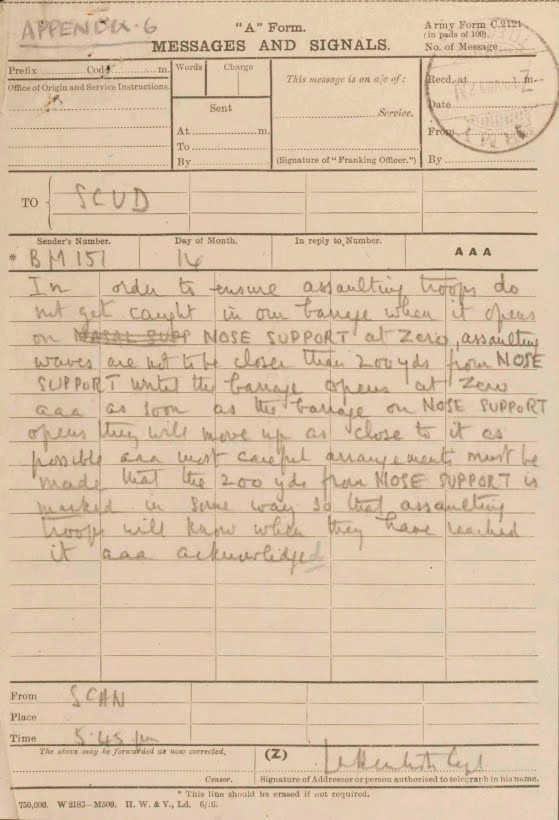 APPENDIX.6
"A" Form.
MESSAGES AND SIGNALS.
Army Form C.2121
(in pads of 100).
No. of Message
Prefix Code m.
Office of Origin and Service Instructions.
Words Charge
Sent
At m.
To
By
This message is on a/c of :
Service.
(Signature of "Franking Officer.")
Recd. at m.
Date
From
By
TO SCUD
Sender's Number. Day of Month. In reply to Number. AAA
* BM 151 14
In order to ensure assaulting troops do
not get caught in our barrage when it opens
on NASAL SUPP NOSE SUPPORT at Zero, assaulting
waves are not to be closer than 200 yds from NOSE
SUPPORT until the barrage opens at Zero
aaa as soon as the barrage on NOSE SUPPORT
opens they will move up as close to it as
possible aaa most careful arrangements must be
made that the 200 yds from NOSE SUPPORT is
marked in some way so that assaulting
troops will know when they have reached
it aaa acknowledged
From SCAN
Place
Time 5.45 pm
The above may be forwarded as now corrected. (Z)
Censor. Signature of Addressor or person authorised to telegraph in his name.
* This line should be erased if not required.
750,000. W 2185—M509. H. W. & V., Ld. 6/16.